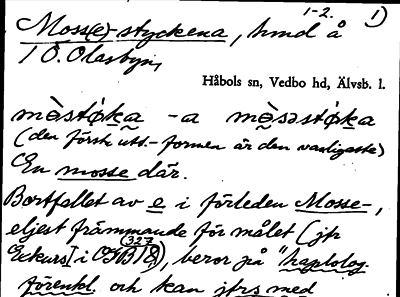 1-2. 1)
Moss(e)-styckena, hmd å
1 Ö. Olasbyn,
Håbols sn, Vedbo hd, Älvsb. l.
mèstø̀ka -a mèsəstø̀ka
(den först utt.-formen är den vanligaste)
En mosse där.
Bortfallet av e i förleden Mosse-,
eljest främmande för målet (jfr
Exkurs I i OGB 18), beror på "haplolog.
327
förenkl. och kan jfrs med